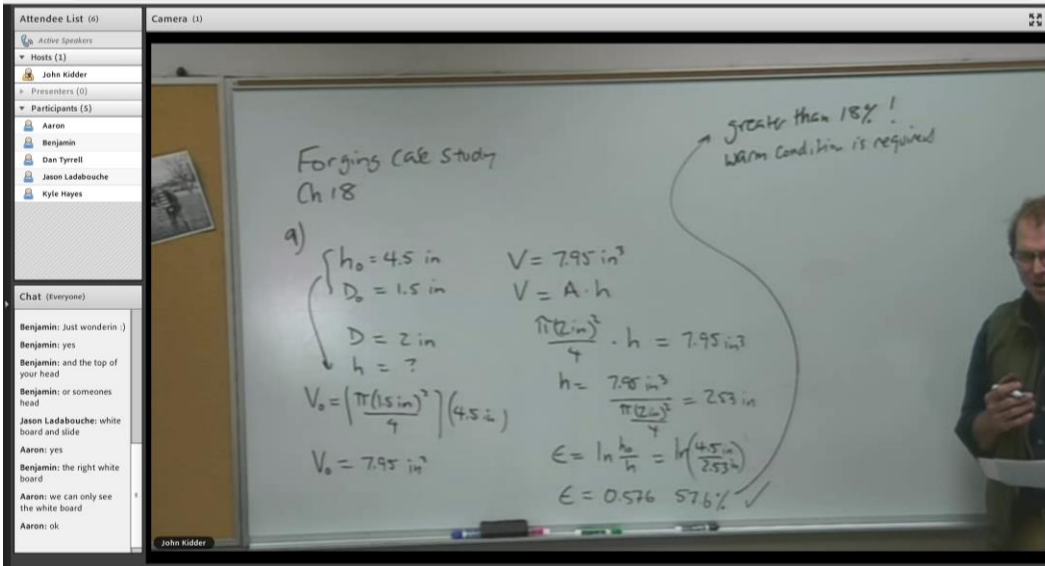 Attendee List (6)
Active Speakers
Hosts (1)
John Kidder
Presenters (0)
Participants (5)
Aaron
Benjamin
Dan Tyrrell
Jason Ladabouche
Kyle Hayes
Chat (Everyone)
Benjamin: Just wonderin :)
Benjamin: yes
Benjamin: and the top of
your head
Benjamin: or someones
head
Jason Ladabouche: white
board and slide
Aaron: yes
Benjamin: the right white
board
Aaron: we can only see
the white board
Aaron: ok
Camera (1)
Forging Case Study
Ch 18
a)
h₀ = 4.5 in
D₀ = 1.5 in
D = 2 in
h = ?
V₀ = [π(1.5 in)²/4](4.5 in)
V₀ = 7.95 in³
V = 7.95 in³
V = A·h
π(2in)²/4 · h = 7.95 in³
h = 7.95 in³/(π(2in)²/4) = 2.53 in
ε = ln h₀/h = ln(4.5 in/2.53 in)
ε = 0.576 57.6% ✓
greater than 18% !
warm condition is required
John Kidder